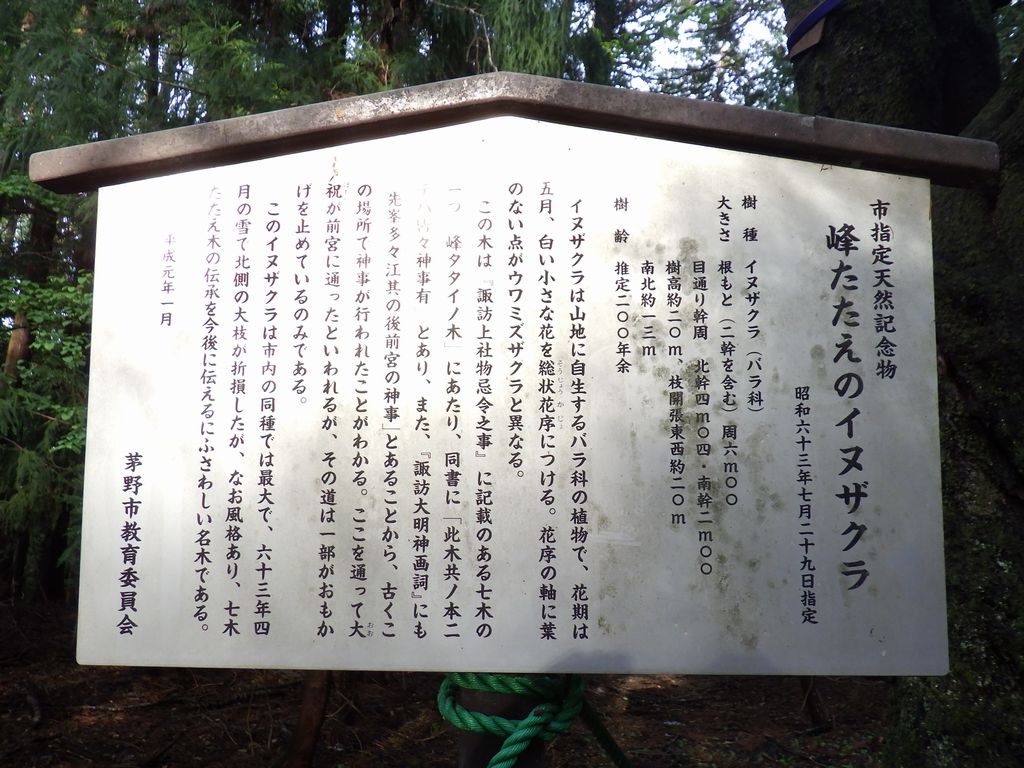 市指定天然記念物
峰たたえのイヌザクラ
昭和六十三年七月二十九日指定
樹種 イヌザクラ（バラ科）
大きさ 根もと（二幹を含む）周六m〇〇
目通り幹周 北幹四m〇四・南幹二m〇〇
樹高約二〇m、枝開張東西約二〇m
南北約一三m
樹齢 推定二〇〇年余
イヌザクラは山地に自生するバラ科の植物で、花期は
五月、白い小さな花を総状花序につける。花序の軸に葉
のない点がウワミズザクラと異なる。
この木は『諏訪上社物忌令之事』に記載のある七木の
一つ 峰タタイノ木」にあたり、同書に「此木共ノ本二
々神事有 とあり、また、『諏訪大明神画詞』にも
先峯多々江其の後前宮の神事」とあることから、古くこ
の場所で神事が行われたことがわかる。ここを通って大
祝が前宮に通ったといわれるが、その道は一部がおもか
げを止めているのみである。
このイヌザクラは市内の同種では最大で、六十三年四
月の雪で北側の大枝が折損したが、なお風格あり、七木
たたえ木の伝承を今後に伝えるにふさわしい名木である。
平成元年一月
茅野市教育委員会